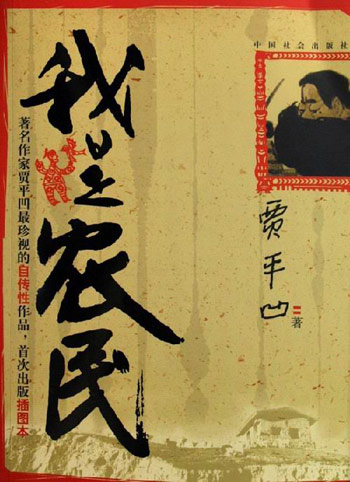 中国社会出版社
我是农民
著名作家贾平凹最珍视的自传性作品，首次出版插图本
贾平凹
著